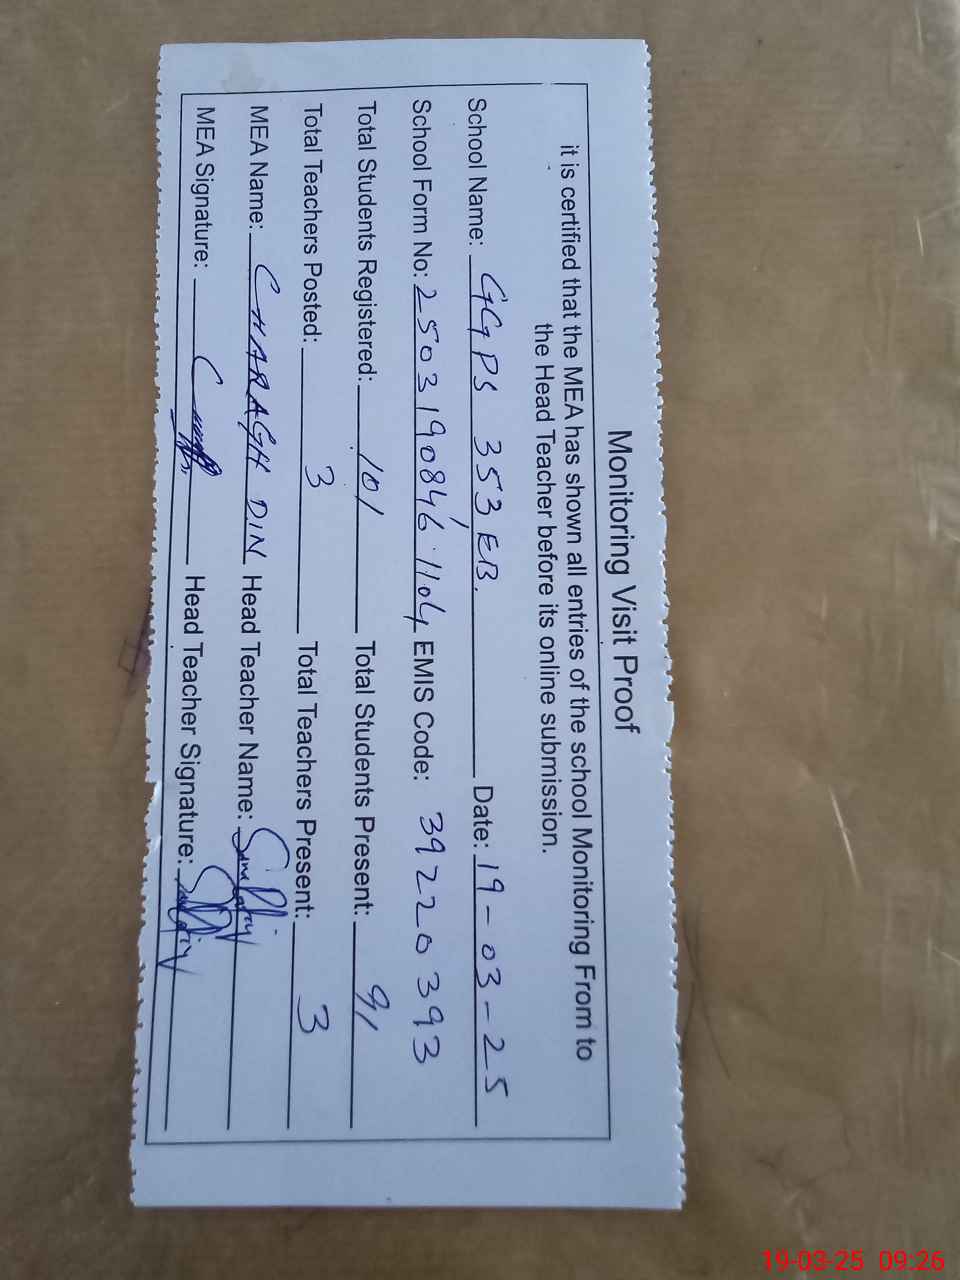 Monitoring Visit Proof
it is certified that the MEA has shown all entries of the school Monitoring From to
the Head Teacher before its online submission.
School Name: GGPS 353 EB. Date: 19-03-25
School Form No: 2503190846 1104 EMIS Code: 39220393
Total Students Registered: 101 Total Students Present: 91
Total Teachers Posted: 3 Total Teachers Present: 3
MEA Name: CHARAGH DIN Head Teacher Name:
MEA Signature: Head Teacher Signature:
19-03-25 09:26